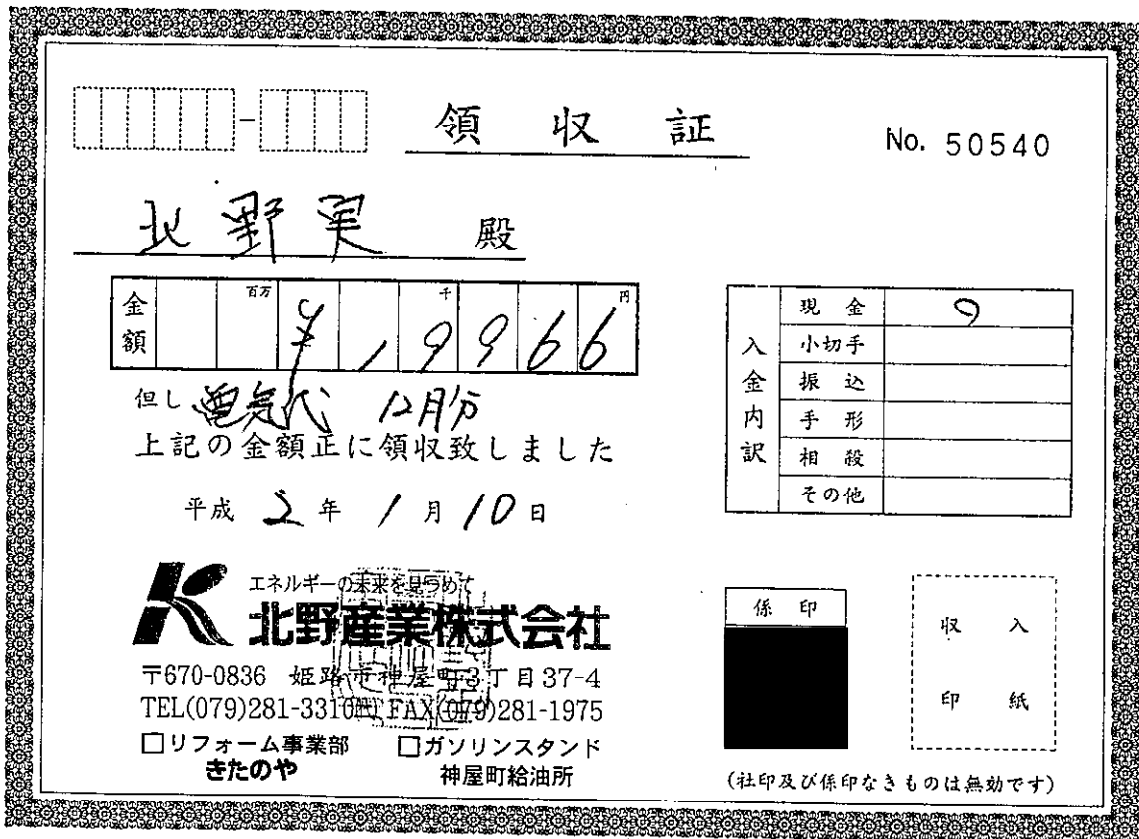 領収証
No. 50540
北野実 殿
金額 百万 千 円
¥19966
但し 電気代 12月分
上記の金額正に領収致しました
平成 2 年 1 月 10 日
入金内訳
現金
小切手
振込
手形
相殺
その他
エネルギーの未来を見つめて
北野産業株式会社
〒670-0836 姫路市神屋町3丁目37-4
TEL(079)281-3310㈹ FAX(079)281-1975
□リフォーム事業部 □ガソリンスタンド
きたのや 神屋町給油所
係印
収入
印紙
(社印及び係印なきものは無効です)